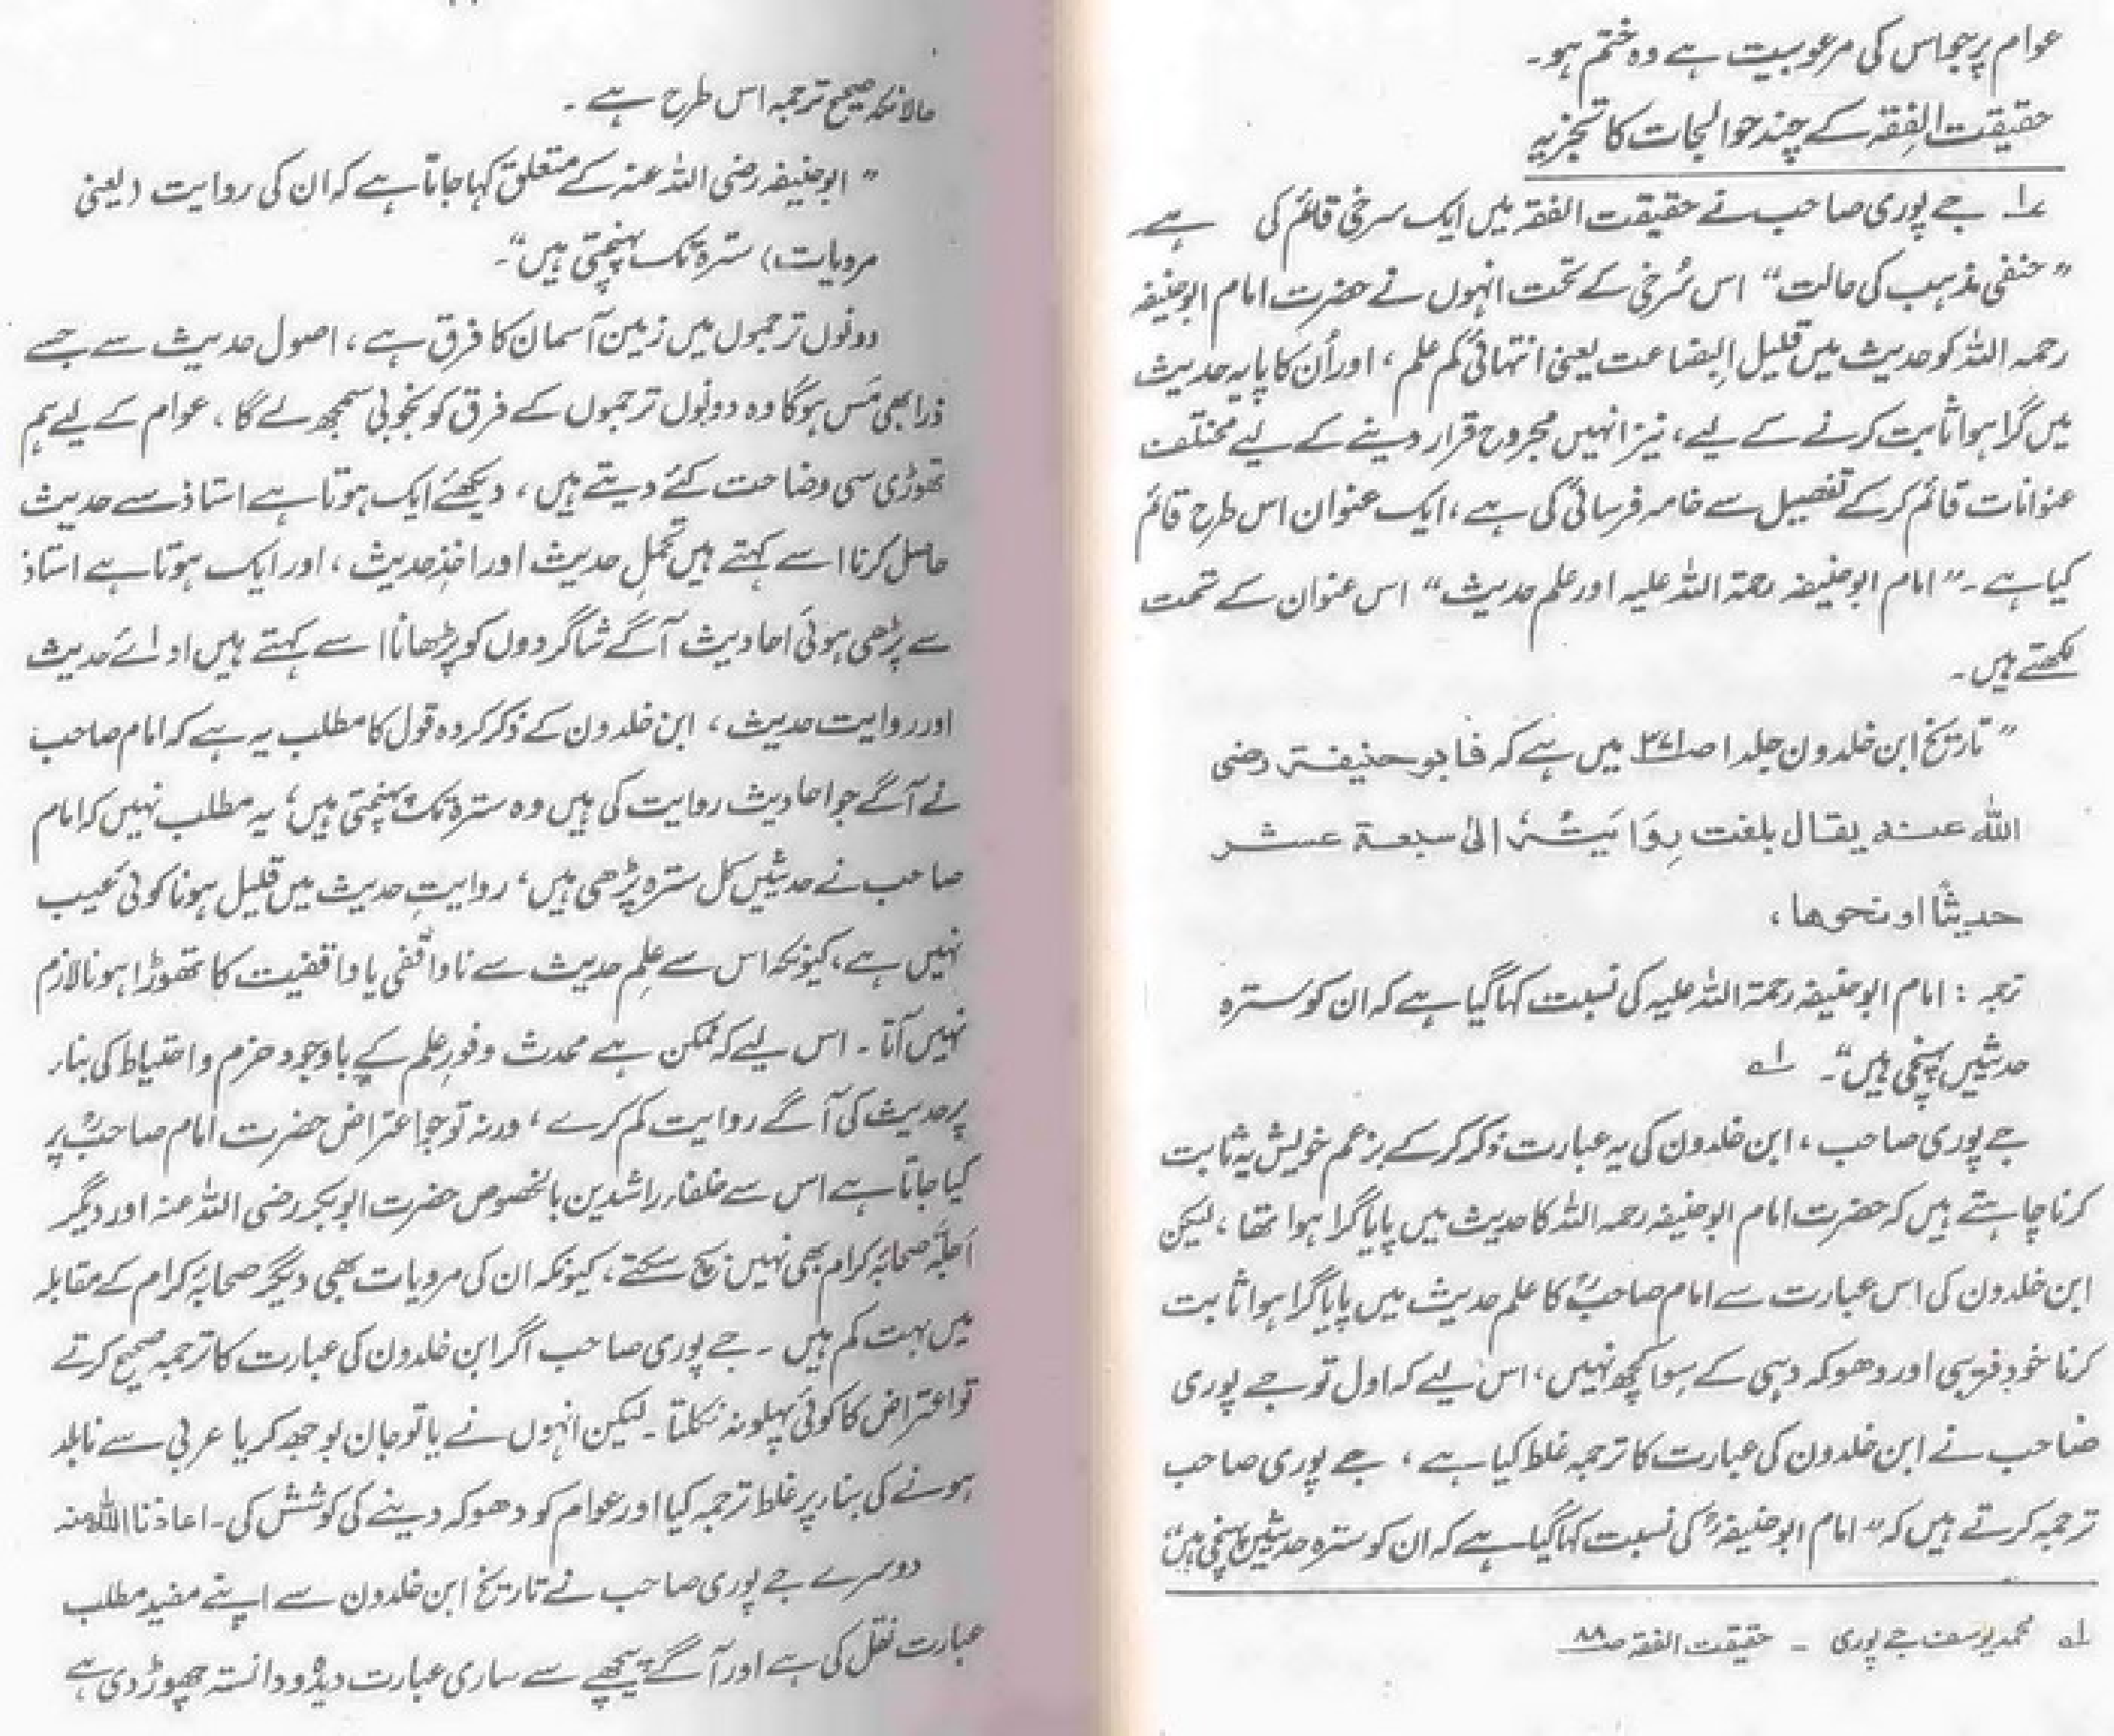 عوام پر بیجا اس کی مرعوبیت ہے وہ ختم ہو۔
حقیقت الفقہ کے چند حوالجات کا تجزیہ
۱؎ جے پوری صاحب نے حقیقت الفقہ میں ایک سرخی قائم کی ہے
”حنفی مذہب کی حالت“ اس سُرخی کے تحت انہوں نے حضرت امام ابوحنیفہ
رحمہ اللہ کو حدیث میں قلیل البضاعت یعنی انتہائی کم علم، اور اُن کا پایہ حدیث
میں گرا ہوا ثابت کرنے کے لیے، نیز انہیں مجروح قرار دینے کے لیے مختلف
عنوانات قائم کرکے تفصیل سے خامہ فرسائی کی ہے، ایک عنوان اس طرح قائم
کیا ہے۔ ”امام ابوحنیفہ رحمۃ اللہ علیہ اور علم حدیث“ اس عنوان کے تحت
لکھتے ہیں۔
”تاریخ ابن خلدون جلد ۱ صـ۳۷۱ میں ہے کہ فابو حنیفة رضی
الله عنه یقال بلغت رِوَایَتُہٗ الیٰ سبعة عشر
حدیثًا او نحوها،
ترجمہ : امام ابوحنیفہ رحمۃ اللہ علیہ کی نسبت کہا گیا ہے کہ ان کو سترہ
حدیثیں پہنچی ہیں“۔ لہ
جے پوری صاحب، ابن خلدون کی یہ عبارت ذکر کرکے بزعم خویش یہ ثابت
کرنا چاہتے ہیں کہ حضرت امام ابوحنیفہ رحمہ اللہ کا حدیث میں پایا گرا ہوا تھا، لیکن
ابن خلدون کی اس عبارت سے امام صاحبؒ کا علم حدیث میں پایا گرا ہوا ثابت
کرنا خود فریبی اور دھوکہ دہی کے سوا کچھ نہیں، اس لیے کہ اول تو جے پوری
صاحب نے ابن خلدون کی عبارت کا ترجمہ غلط کیا ہے، جے پوری صاحب
ترجمہ کرتے ہیں کہ ”امام ابوحنیفہؒ کی نسبت کہا گیا ہے کہ ان کو سترہ حدیثیں پہنچی ہیں“
لہ محمد یوسف جے پوری ۔ حقیقت الفقہ صـ۸۸
حالانکہ صحیح ترجمہ اس طرح ہے۔
”ابوحنیفہ رضی اللہ عنہ کے متعلق کہا جاتا ہے کہ ان کی روایت (یعنی
مرویات) سترہ تک پہنچتی ہیں“۔
دونوں ترجموں میں زمین آسمان کا فرق ہے، اصول حدیث سے جسے
ذرا بھی مَس ہوگا وہ دونوں ترجموں کے فرق کو بخوبی سمجھ لے گا، عوام کے لیے ہم
تھوڑی سی وضاحت کئے دیتے ہیں، دیکھئے ایک ہوتا ہے استاذ سے حدیث
حاصل کرنا اسے کہتے ہیں تحملِ حدیث اور اخذِ حدیث، اور ایک ہوتا ہے استاذ
سے پڑھی ہوئی احادیث آگے شاگردوں کو پڑھانا اسے کہتے ہیں ادائے حدیث
اور روایت حدیث، ابن خلدون کے ذکر کردہ قول کا مطلب یہ ہے کہ امام صاحب
نے آگے جو احادیث روایت کی ہیں وہ سترہ تک پہنچتی ہیں، یہ مطلب نہیں کہ امام
صاحب نے حدیثیں کل سترہ پڑھی ہیں، روایتِ حدیث میں قلیل ہونا کوئی عیب
نہیں ہے، کیونکہ اس سے علمِ حدیث سے ناواقفی یا واقفیت کا تھوڑا ہونا لازم
نہیں آتا۔ اس لیے کہ ممکن ہے محدث وفورِ علم کے باوجود حزم و احتیاط کی بناء
پر حدیث کی آگے روایت کم کرے، ورنہ تو جو اعتراض حضرت امام صاحبؒ پر
کیا جاتا ہے اس سے خلفاء راشدین بالخصوص حضرت ابوبکر رضی اللہ عنہ اور دیگر
اَجلّہ صحابۂ کرام بھی نہیں بچ سکتے، کیونکہ ان کی مرویات بھی دیگر صحابۂ کرام کے مقابلہ
میں بہت کم ہیں ۔ جے پوری صاحب اگر ابن خلدون کی عبارت کا ترجمہ صحیح کرتے
تو اعتراض کا کوئی پہلو نہ نکلتا۔ لیکن انہوں نے یا تو جان بوجھ کر یا عربی سے نابلد
ہونے کی بناء پر غلط ترجمہ کیا اور عوام کو دھوکہ دینے کی کوشش کی۔ اعاذنا اللہ منہ
دوسرے جے پوری صاحب نے تاریخ ابن خلدون سے اپنے مفید مطلب
عبارت نقل کی ہے اور آگے پیچھے سے ساری عبارت دیدہ و دانستہ چھوڑ دی ہے